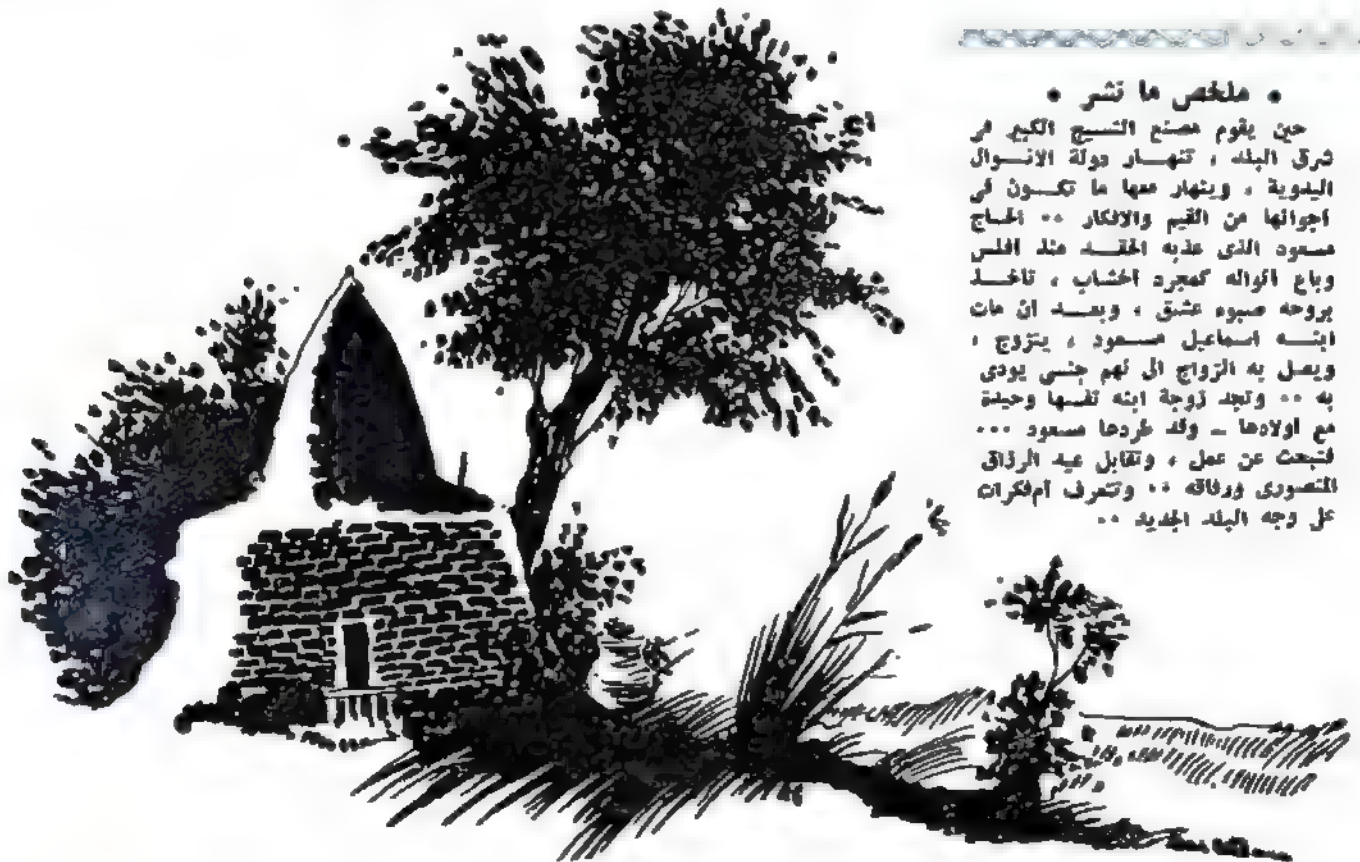 • ملخص ما نشر •
حين يقوم مصنع النسيج الكبير في
شرق البلد ، تنهار دولة الانوال
اليدوية ، وينهار معها ما تكون في
اجوائها من القيم والافكار ٠٠ الحاج
مسعود الذى عذبه الحقد منذ افلس
وباع انواله كمجرد اخشاب ، تأخذ
بروحه صبوه عشق ، وبعد ان مات
ابنه اسماعيل مسعود ، يتزوج ،
ويصل به الزواج الى نهم جنسى يودى
به ٠٠ وتجد زوجة ابنه نفسها وحيدة
مع اولادها ــ وقد طردها مسعود ٠٠٠
فتبحث عن عمل ، وتقابل عبد الرزاق
المنصورى ورفاقه ٠٠ وتتعرف أم فكرات
على وجه البلد الجديد ٠٠